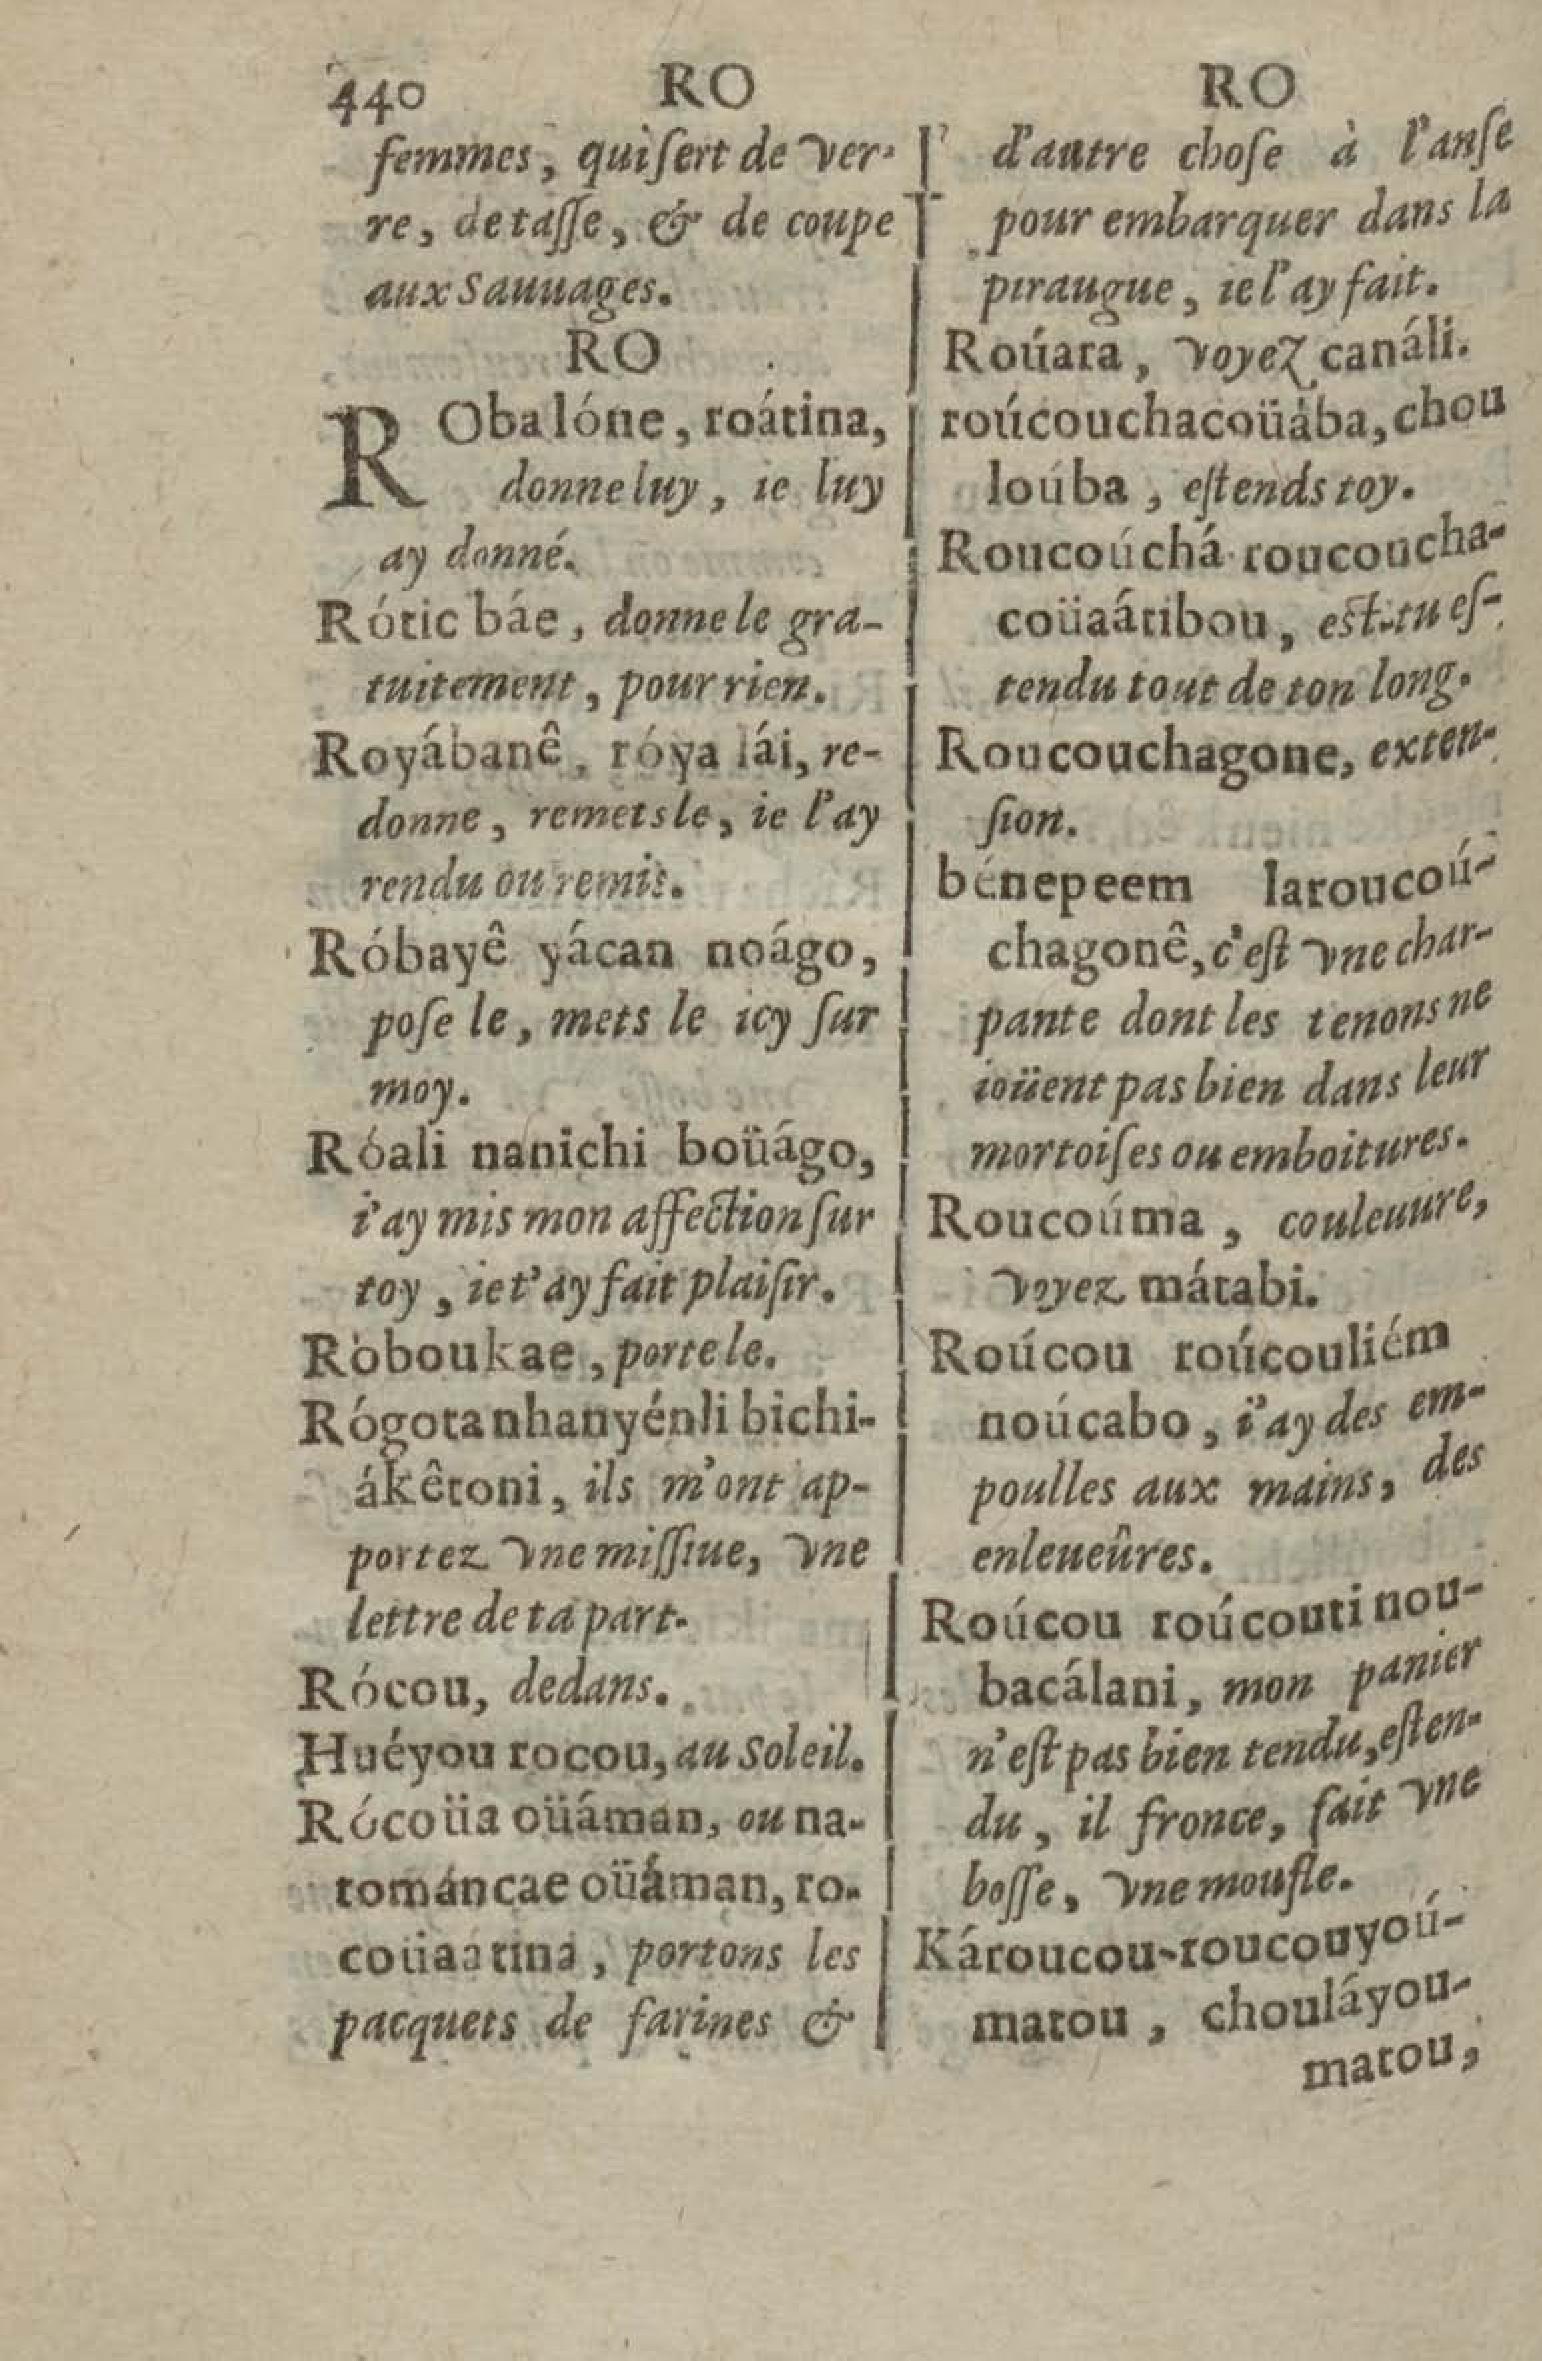 440 RO RO
femmes, qui ſert de ver-
re, de taſſe, & de coupe
aux Sauuages.
RO
RObalóne, roátina,
donne luy, ie luy
ay donné.
Rótic báe, donne le gra-
tuitement, pour rien.
Royábanê, róya lái, re-
donne, remets le, ie l'ay
rendu ou remis.
Róbayê yácan noágo,
poſe le, mets le icy ſur
moy.
Róali nanichi boüágo,
i'ay mis mon affection ſur
toy, ie t'ay fait plaiſir.
Roboukae, porte le.
Rógota nhanyénli bichi-
ákêtoni, ils m'ont ap-
portez vne miſſiue, vne
lettre de ta part.
Rócou, dedans.
Huéyou rocou, au Soleil.
Rócoüa oüáman, ou na-
tománcae oüáman, ro-
coüaatina, portons les
pacquets de farines &
d'autre choſe à l'anſe
pour embarquer dans la
piraugue, ie l'ay fait.
Roúara, voyez canáli.
roúcouchacoüába, chou
loúba, eſtends toy.
Roucoúchá roucoucha-
coüaátibou, eſt-tu eſ-
tendu tout de ton long.
Roucouchagone, exten-
ſion.
bénepeem laroucoú-
chagonê, c'eſt vne char-
pante dont les tenons ne
ioüent pas bien dans leur
mortoiſes ou emboitures.
Roucoúma, couleuure,
voyez mátabi.
Roúcou roúcouliém
noúcabo, i'ay des em-
poulles aux mains, des
enleueûres.
Roúcou roúcouti nou-
bacálani, mon panier
n'eſt pas bien tendu, eſten-
du, il fronce, fait vne
boſſe, vne moufle.
Károucou-roucouyoú-
matou, chouláyou-
matou,